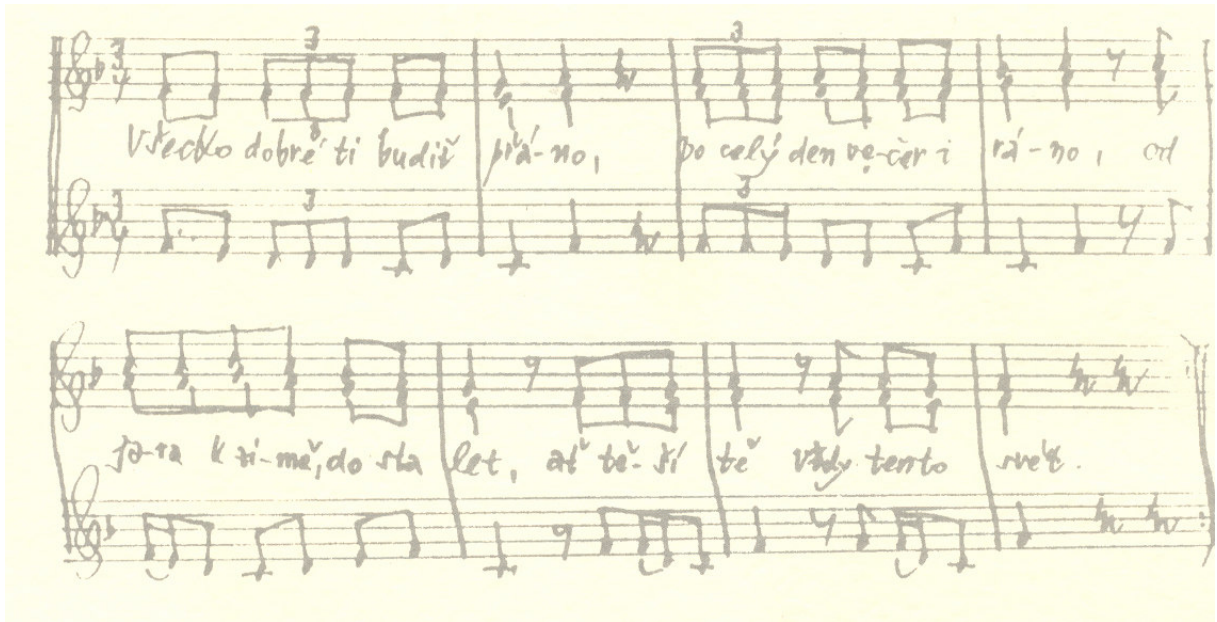 Všecko dobré ti budiž přá-no, po celý den ve-čer i rá-no, od
ja-ra k zi-mě, do sta let, ať tě-ší tě vždy tento svět.